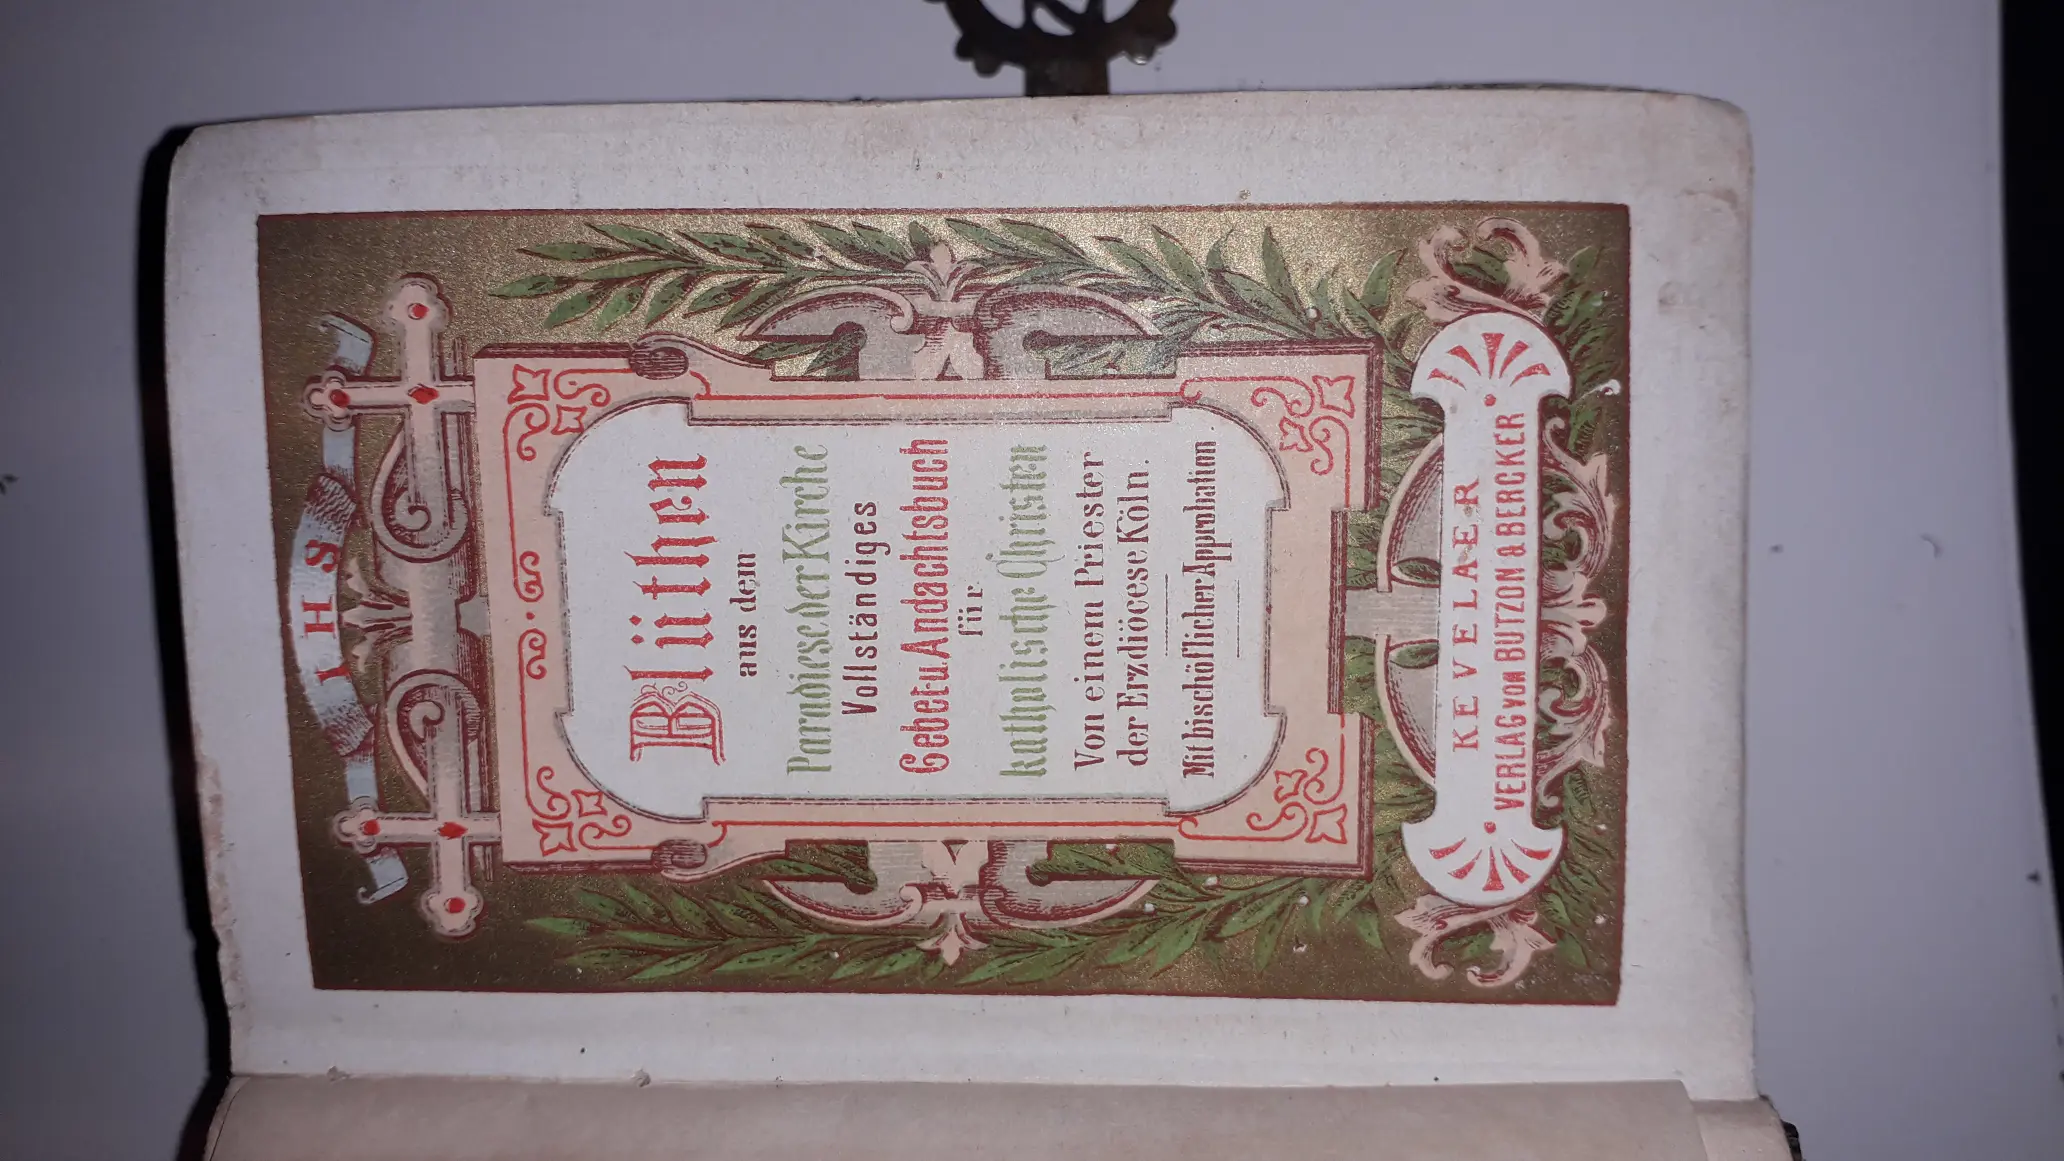 IHS
Blüthen
aus dem
Paradiese der Kirche
Vollständiges
Gebet u. Andachtsbuch
für
katholische Christen
Von einem Priester
der Erzdiöcese Köln.
Mit bischöflicher Approbation.
KEVELAER
VERLAG VON BUTZON & BERCKER